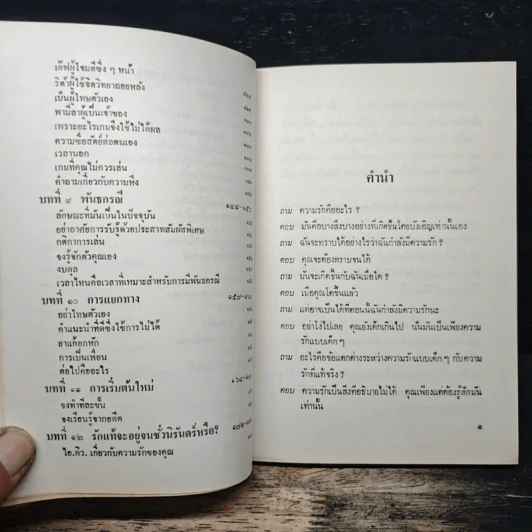 เด๊ฟผู้โชมตีซึ่ง ๆ หน้า
ริต้าผู้ใช้จิตวิทยาถอยหลัง
เป็นผู้โทษตัวเอง
พามีลาผู้เป็นเจ้าของ
เพราะอะไรเกมจึงใช้ไม่ได้ผล
ความซื่อสัตย์ต่อตนเอง
เวลานอก
เกมที่คุณไม่ควรเล่น
คำถามเกี่ยวกับความหึง
บทที่ ๙ พันธกรณี
ลักษณะที่มันเป็นในปัจจุบัน
อย่าอาศัยการรับรู้ด้วยประสาทสัมผัสพิเศษ
กติกาการเล่น
จงรู้จักตัวคุณเอง
งบดุล
เวลาไหนคือเวลาที่เหมาะสำหรับการมีพันธกรณี
บทที่ ๑๐ การแยกทาง
อย่าโทษตัวเอง
คำแนะนำที่ดีซึ่งใช้การไม่ได้
ยาแก้อกหัก
การเป็นเพื่อน
ต่อไปคืออะไร
บทที่ ๑๑ การเริ่มต้นใหม่
จงทำทีละขั้น
จงเรียนรู้จากอดีต
บทที่ ๑๒ รักแท้จะอยู่จนชั่วนิรันดร์หรือ?
ไอ.คิว. เกี่ยวกับความรักของคุณ
คำนำ
ถาม ความรักคืออะไร ?
ตอบ มันคือบางสิ่งบางอย่างที่เกิดขึ้นโดยบังเอิญเท่านั้นเอง
ถาม ฉันจะทราบได้อย่างไรว่าฉันกำลังมีความรัก ?
ตอบ คุณจะต้องทราบจนได้
ถาม มันจะเกิดขึ้นกับฉันเมื่อใด ?
ตอบ เมื่อคุณโตขึ้นแล้ว
ถาม แต่อาจเป็นได้ที่ตอนนี้ฉันกำลังมีความรักนะ
ตอบ อย่าโง่ไปเลย คุณยังเด็กเกินไป นั่นมันเป็นเพียงความ
รักแบบเด็ก ๆ
ถาม อะไรคือข้อแตกต่างระหว่างความรักแบบเด็ก ๆ กับความ
รักที่แท้จริง ?
ตอบ ความรักเป็นสิ่งที่อธิบายไม่ได้ คุณเพียงแต่ต้องรู้สึกมัน
เท่านั้น
๑